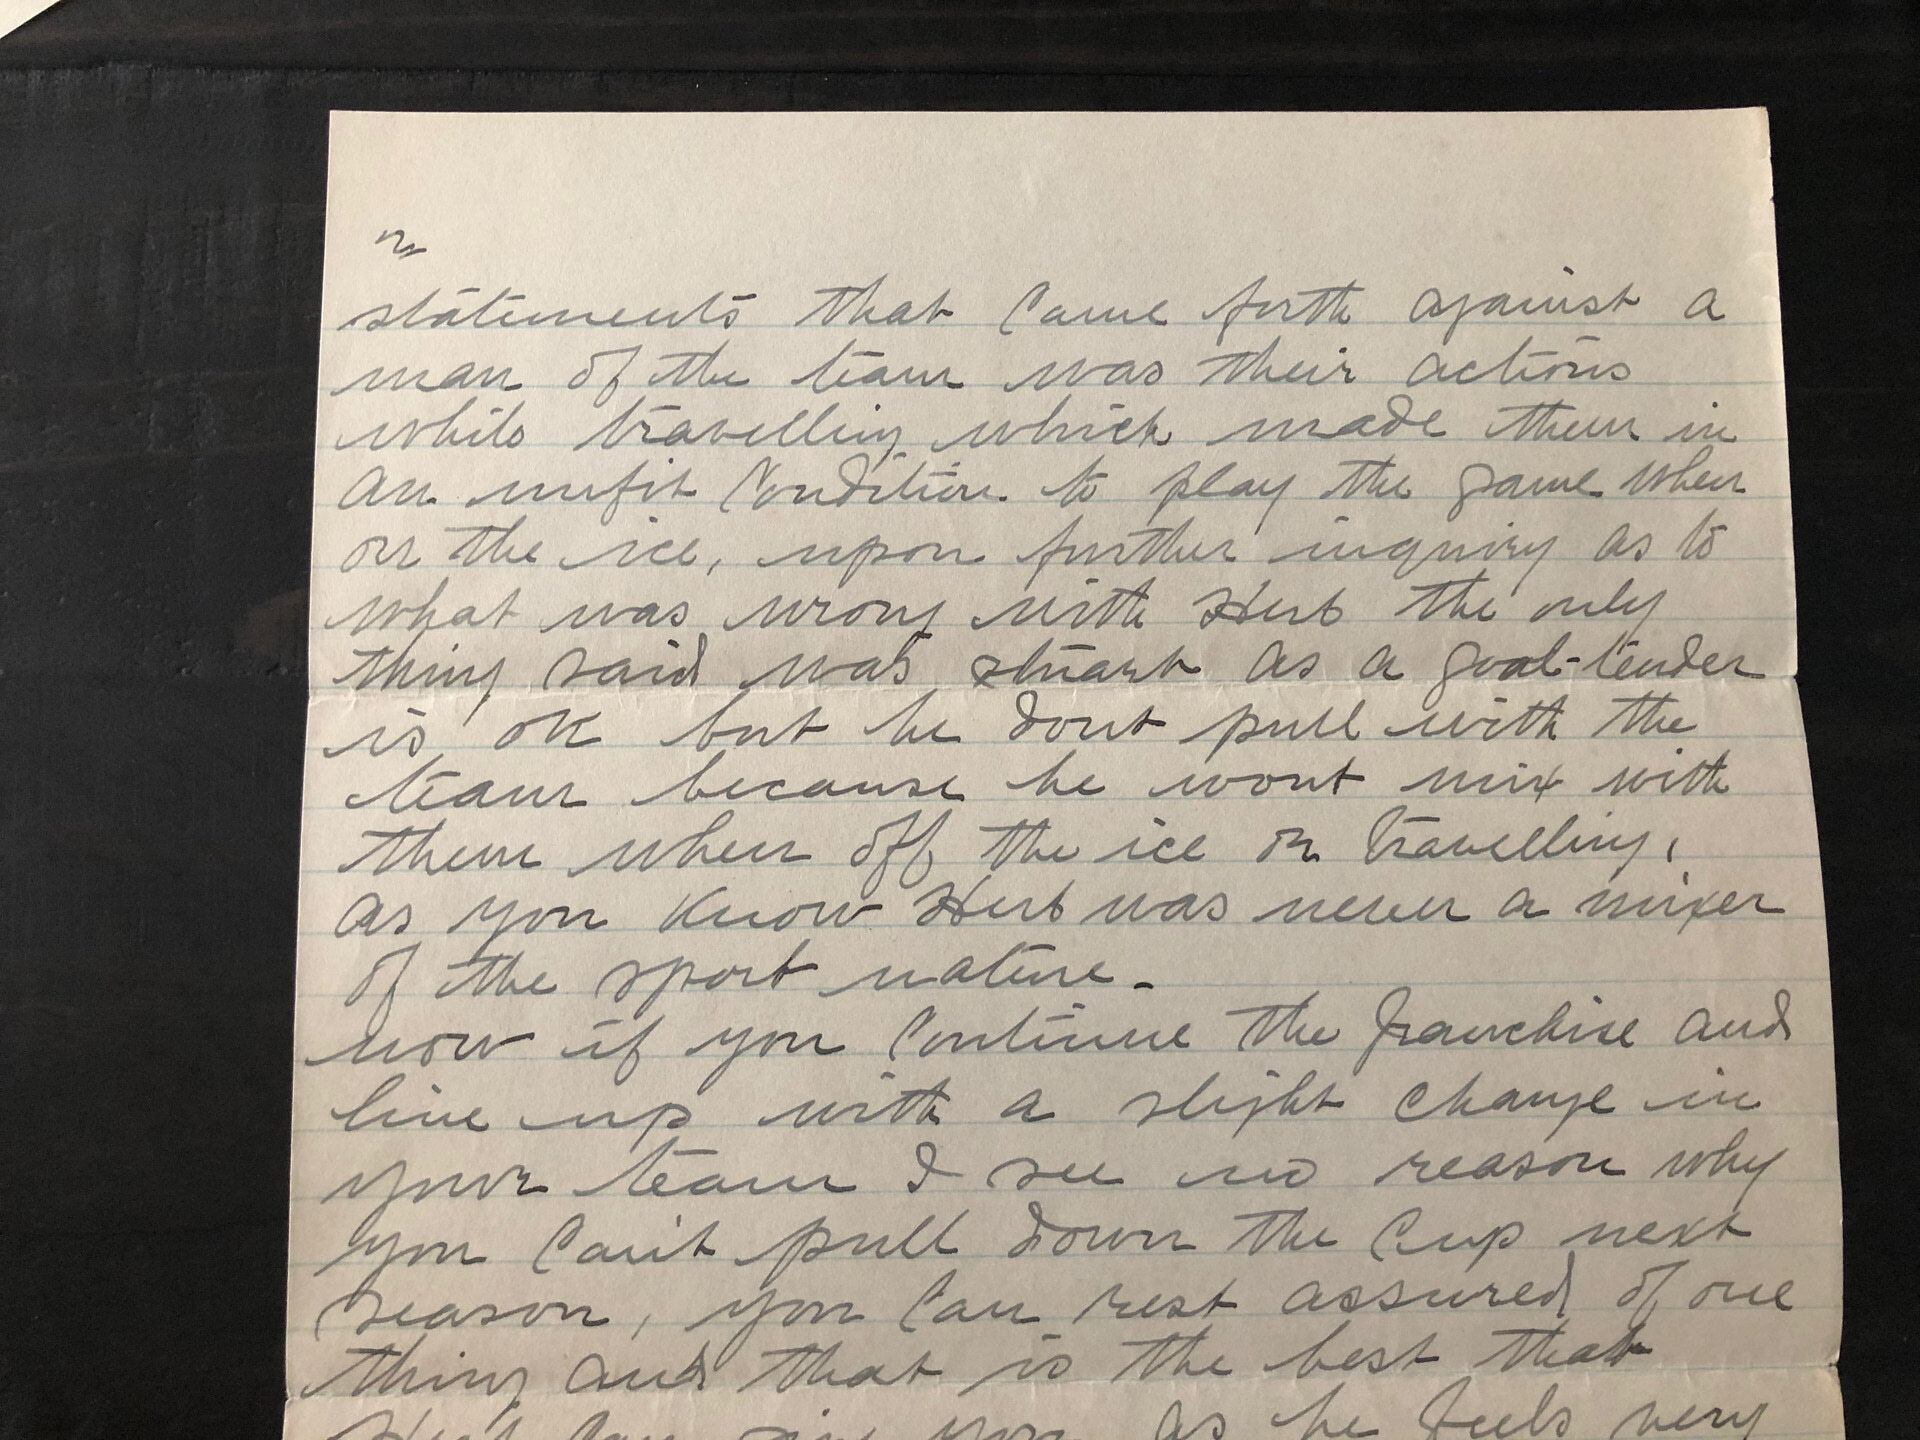 statements that Came forth against a
man of the team was their actions
while travelling which made them in
an unfit Condition to play the game when
on the ice, upon further inquiry as to
what was wrong with Herb the only
thing said was Stuart as a goal-tender
is OK but he dont pull with the
team because he wont mix with
them when off the ice or travelling,
as you Know Herb was never a mixer
of the sport nature.
now if you Continue the franchise and
line up with a slight Change in
your team I see no reason why
you Can't pull down the Cup next
season, you Can rest assured of one
thing and that is the best that
Herb Can give you as he feels very